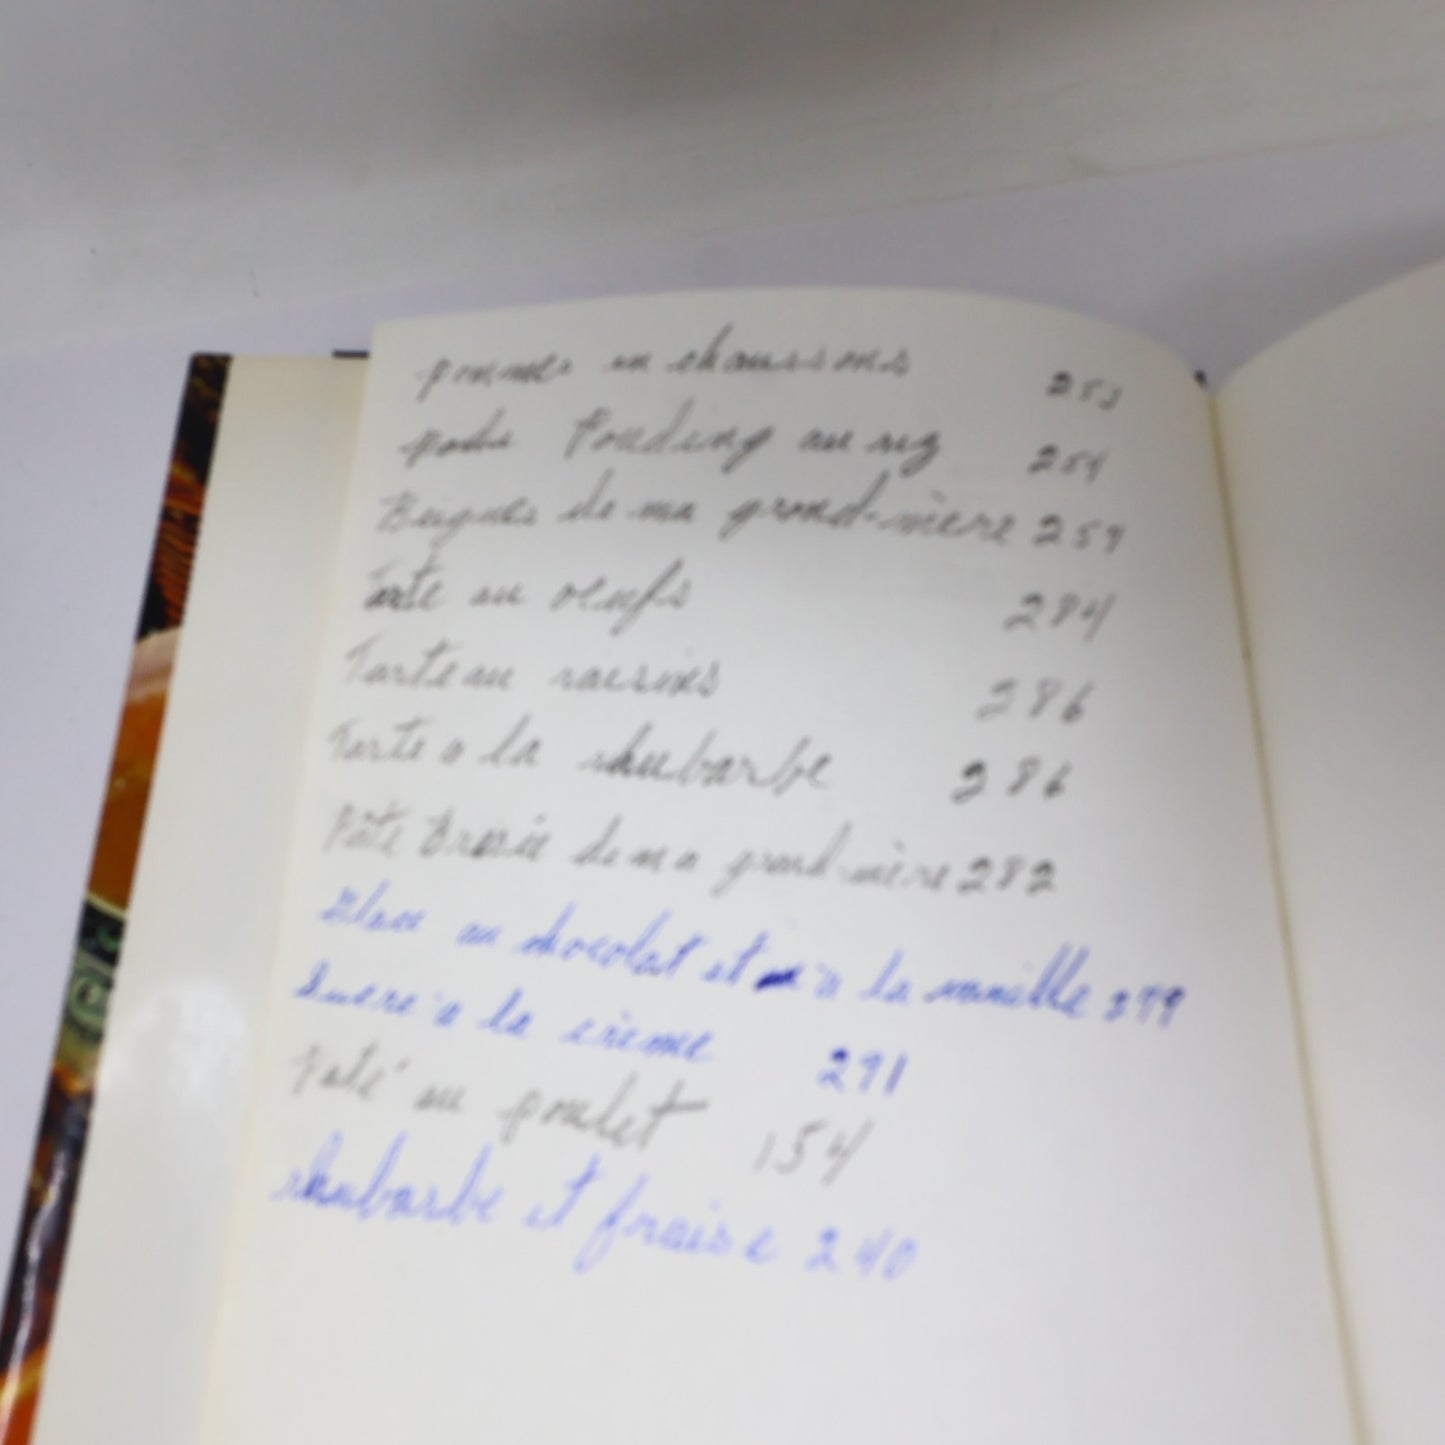 pommes en chaussons 253
Pouding au riz 254
Beignes de ma grand-mère 259
Tarte au oeufs 284
Tarte au raisins 286
Tarte a la rhubarbe 286
Pâte Brisée de ma grand-mère 282
Glace au chocolat et à la vanille 299
Sucre à la crème 291
Paté au poulet 154
rhubarbe et fraise 240